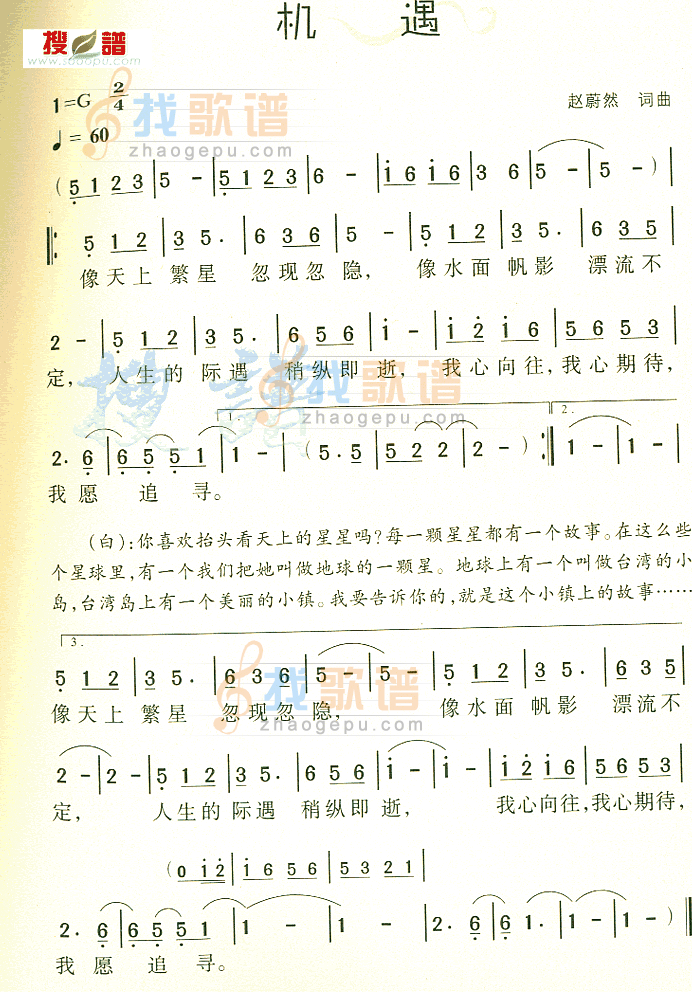 机 遇
搜 谱
www.sooopu.com
1=G 2/4
赵蔚然 词曲
♩= 60
找歌谱
zhaogepu.com
( 5 1 2 3 | 5 - | 5 1 2 3 | 6 - | i 6 i 6 | 3 6 | 5 - | 5 - )
‖: 5 1 2 | 3 5 . | 6 3 6 | 5 - | 6 1 2 | 3 5 . | 6 3 5 |
像天上 繁星 忽现忽隐, 像水面 帆影 漂流不
2 - | 5 1 2 | 3 5 . | 6 5 6 | i - | i 2 i 6 | 5 6 5 3 |
定, 人生的 际遇 稍纵即 逝, 我心向往,我心期待,
搜 谱
找歌谱
zhaogepu.com
1. 2.
2 . 6 | 6 5 5 1 | 1 - | ( 5 . 5 | 5 2 2 | 2 - ) :‖ 1 - | 1 - |
我愿 追 寻。
(白):你喜欢抬头看天上的星星吗?每一颗星星都有一个故事。在这么些
个星球里,有一个我们把她叫做地球的一颗星。地球上有一个叫做台湾的小
岛,台湾岛上有一个美丽的小镇。我要告诉你的,就是这个小镇上的故事……
3.
找歌谱
zhaogepu.com
5 1 2 | 3 5 . | 6 3 6 | 5 - | 5 - | 5 1 2 | 3 5 . | 6 3 5 |
像天上 繁星 忽现忽 隐, 像水面 帆影 漂流不
2 - | 2 - | 5 1 2 | 3 5 . | 6 5 6 | i - | i - | i 2 i 6 | 5 6 5 3 |
定, 人生的 际遇 稍纵即 逝, 我心向往,我心期待,
( 0 i 2 | i 6 5 6 | 5 3 2 1 |
2 . 6 | 6 5 5 1 | 1 - | 1 - ) | 2 . 6 | 6 5 1 | 1 - | 1 - ) ‖
我愿 追 寻。